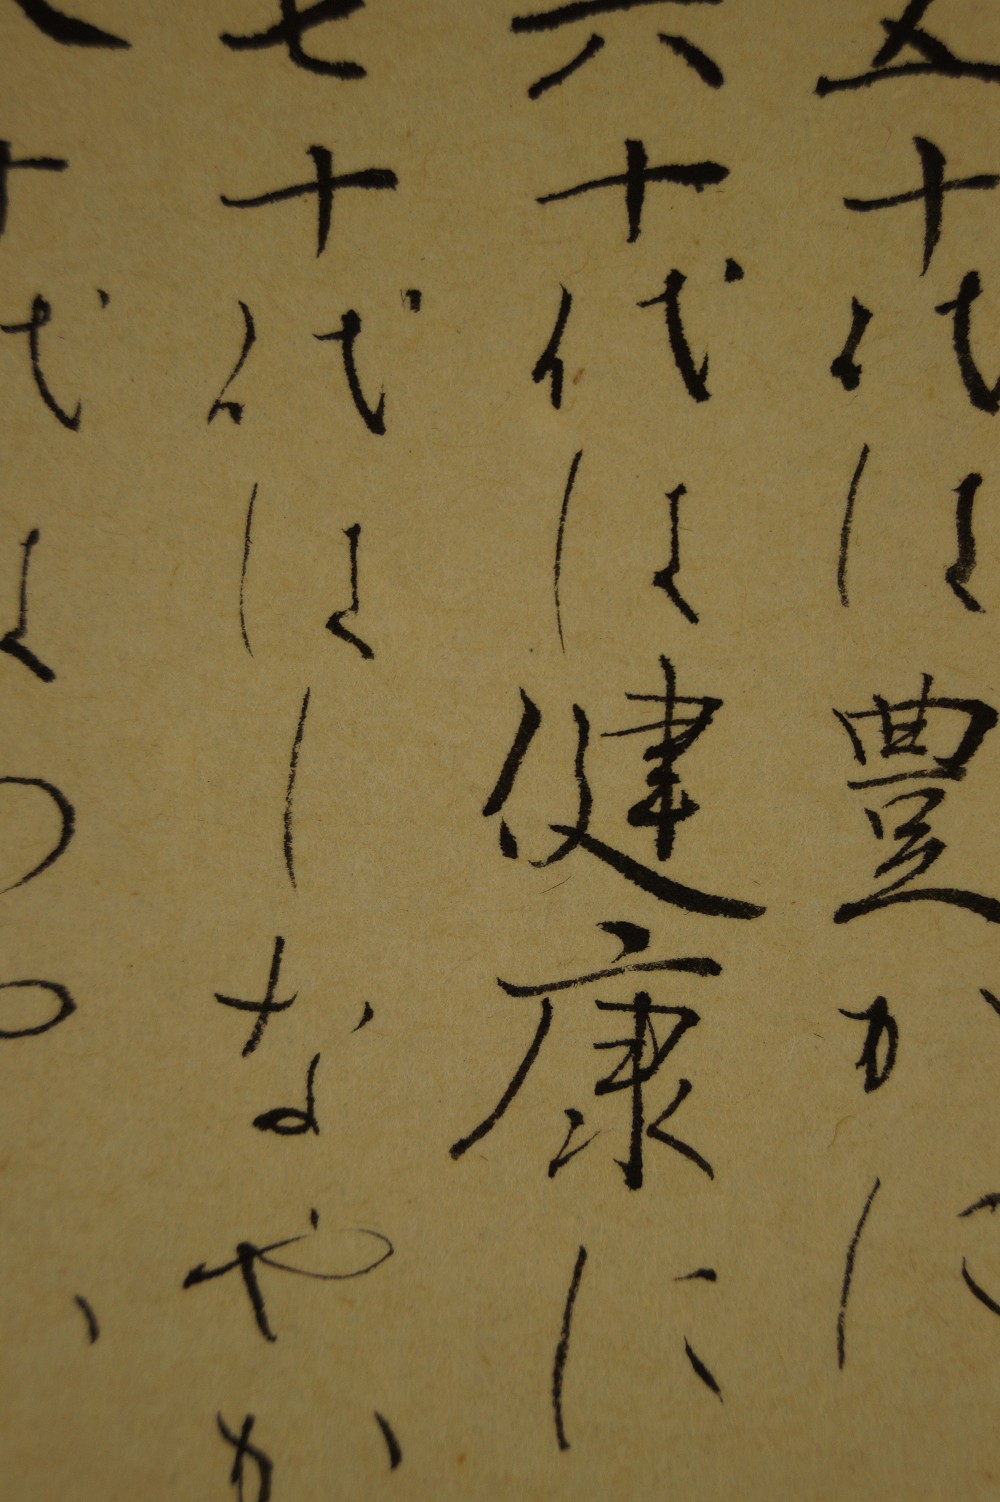 五十代は豊かに
六十代は健康に
七十代はしなやか
八十代はつ